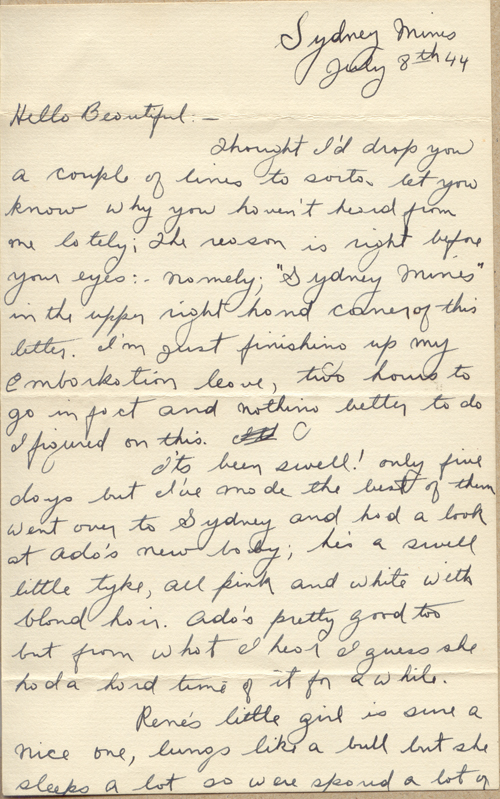 Sydney Mines
July 8th 44
Hello Beautiful:-
Thought I'd drop you
a couple of lines to sorta let you
know why you haven't heard from
me lately; The reason is right before
your eyes:- namely; "Sydney Mines"
in the upper right hand corner of this
letter. I'm just finishing up my
Embarkation leave, two hours to
go in fact and nothing better to do
I figured on this.
It's been swell! only five
days but I've made the best of them
went over to Sydney and had a look
at Ada's new baby; he's a swell
little tyke, all pink and white with
blond hair. Ada's pretty good too
but from what I hear I guess she
had a hard time of it for a while.
Rene's little girl is sure a
nice one, lungs like a bull but she
sleeps a lot so were spared a lot of